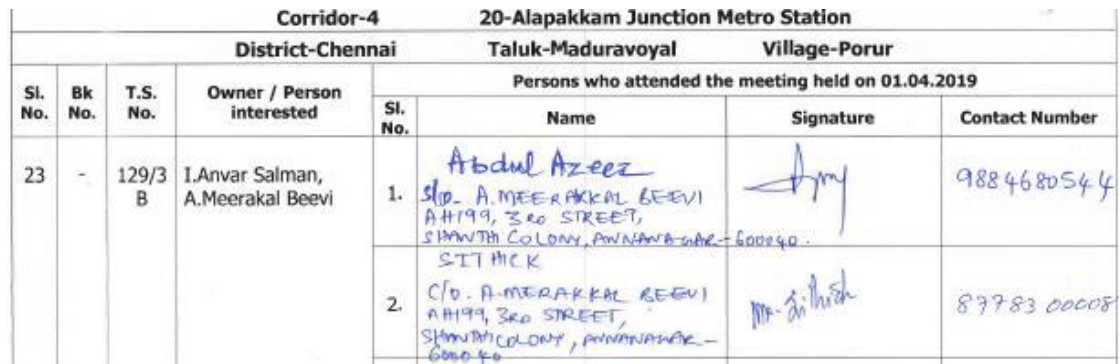 Corridor-4 20-Alapakkam Junction Metro Station
District-Chennai Taluk-Maduravoyal Village-Porur
Sl. No. Bk No. T.S. No. Owner / Person interested
Persons who attended the meeting held on 01.04.2019
Sl. No. Name Signature Contact Number
23 - 129/3 B I.Anvar Salman,
A.Meerakal Beevi
1. Abdul Azeez
S/o. A.MEERAKKAL BEEVI
AH199, 3RD STREET,
SHANTHI COLONY, ANNANAGAR-600040.
9884680544
2. SITHICK
C/o. A.MERAKKAL BEEVI
AH199, 3RD STREET,
SHANTHI COLONY, ANNANAGAR-
600040
87783 00008